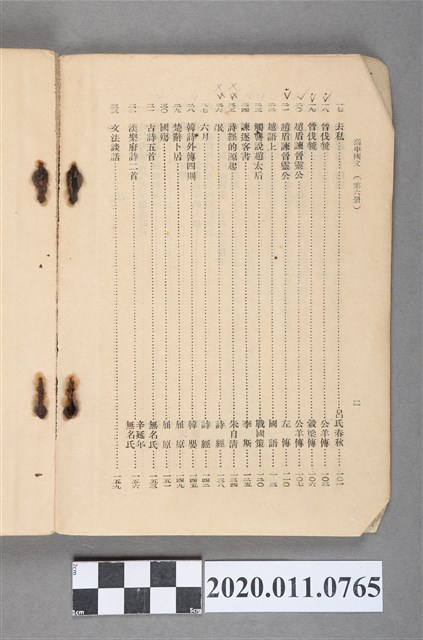 高中國文（第六冊） 二
一七 去私 呂氏春秋 一〇一
一八 晉伐虢 公羊傳 一〇三
一九 晉伐虢 穀梁傳 一〇六
二〇 趙盾諫晉靈公 公羊傳 一〇七
二一 趙盾諫晉靈公 左傳 一一〇
二二 越語上 國語 一一三
二三 觸讋說趙太后 戰國策 一二〇
二四 諫逐客書 李斯 一二五
二五 詩經的源起 朱自清 一三四
二六 氓 詩經 一三八
二七 六月 詩經 一四二
二八 韓詩外傳四則 韓嬰 一四五
二九 楚辭卜居 屈原 一四九
三〇 國殤 屈原 一五一
三一 古詩五首 無名氏 一五三
三二 漢樂府詩二首 辛延年 無名氏 一五六
三三 文法談話 一五九
2020.011.0765